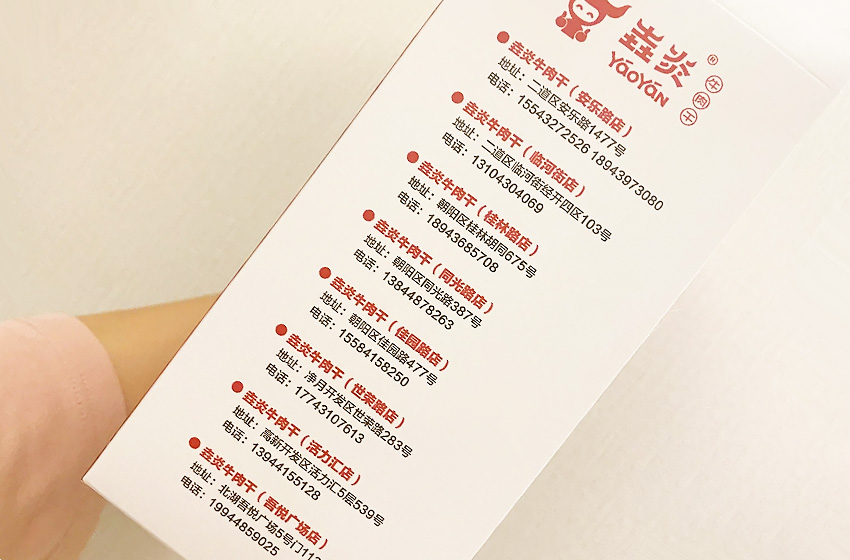 垚炎®
YāoYán
牛肉干
垚炎牛肉干(安乐路店)
地址:二道区安乐路1477号
电话:15543272526 18943973080
垚炎牛肉干(临河街店)
地址:二道区临河街经开四区103号
电话:13104304069
垚炎牛肉干(桂林路店)
地址:朝阳区桂林胡同675号
电话:18943685708
垚炎牛肉干(同光路店)
地址:朝阳区同光路387号
电话:13844878263
垚炎牛肉干(佳园路店)
地址:朝阳区佳园路477号
电话:15584158250
垚炎牛肉干(世荣路店)
地址:净月开发区世荣路283号
电话:17743107613
垚炎牛肉干(活力汇店)
地址:高新开发区活力汇5层539号
电话:13944155128
垚炎牛肉干(吾悦广场店)
地址:北湖吾悦广场5号门
电话:19944859025